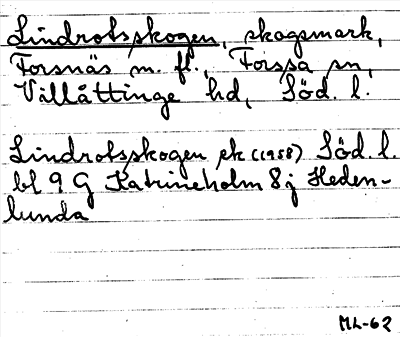 Lindrotsskogen, skogsmark,
Forsnäs m. fl., Forssa sn,
Villåttinge hd, Söd. l.
Lindrotsskogen ek (1958) Söd. l.
bl 9 G Katrineholm 8 j Heden-
lunda
ML-62